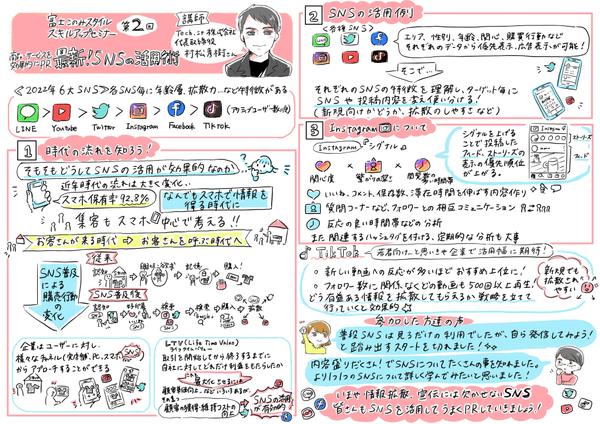 富士このみスタイル
スキルアップセミナー
第2回
講師
Tech.st株式会社
代表取締役
最新!SNSの活用術
≪2022年6大SNS≫各SNS毎に年齢層、拡散力…など特徴がある
LINE
Youtube
Twitter
Instagram
Facebook
TikTok
(アクティブユーザー数の順)
1 時代の流れを知ろう!
そもそもどうしてSNSの活用が効果的なのか
近年時代の流れは大きく変化…
スマホ保有率92.8%
なんでもスマホで情報を
得る時代に
集客もスマホ中心で考える!!
お客さんが来る時代⇨お客さんを呼ぶ時代へ
従来
認知
記憶
購入!
SNS普及後
認知
検索
購入
拡散
SNS普及
による
購買行動
の
変化
企業はユーザーに対し、
様々なチャネル(実店舗、PC、スマホ…)
からアプローチすることができる
LTV(Life Time Value)
ライフタイムバリュー
取引を開始してから終了するまでに
自社に対しどれだけ利益をもたらしたか
最大化させるには
顧客の獲得・維持コストの
SNSの活用
が効果的
2 SNSの活用例
<各種SNS>
エリア、性別、年齢、関心、購買行動など
それぞれのデータから優先表示、広告表示が可能!
そこで…
それぞれのSNSの特徴を理解し、ターゲット毎に
SNSや投稿内容を変え使い分ける!
(新規向けかどうか、拡散のしやすさなど)
3 Instagramについて
Instagramシグナル
関心度
繋がりの深さ
閲覧数の多い時間帯
シグナルを上げる
ことで投稿した
フィード、ストーリーズ
の表示の優先順位
が上がる。
Instagram
ストーリーズ
フィード
いいね、コメント、保存数、滞在時間を伸ばす内容作り
質問コーナーなど、フォロワーとの相互コミュニケーション
反応の良い時間帯などの分析
また関連するハッシュタグを付ける、定期的な分析も大事
TikTok
若者向け…と思いきや企業で活用価値に期待!
○新しい動画への反応が多いほどおすすめ上位に!
○フォロワー数に関係なくどの動画も500回以上再生!
どう有益ある情報を拡散してもらえるか戦略を立てて
行っていくと効果的
新規でも
拡散され
やすい
参加した方達の声
普段SNSは見るだけの利用でしたが、自ら発信してみよう!
と踏み出すスタートを切れました!
内容盛りだくさん!でSNSについてたくさんの事を知れました。
より1つ1つのSNSについて詳しく学んでみたいと思いました!
いまや情報拡散、宣伝には欠かせないSNS
皆さんもSNSを活用してうまくPRしていきましょう!